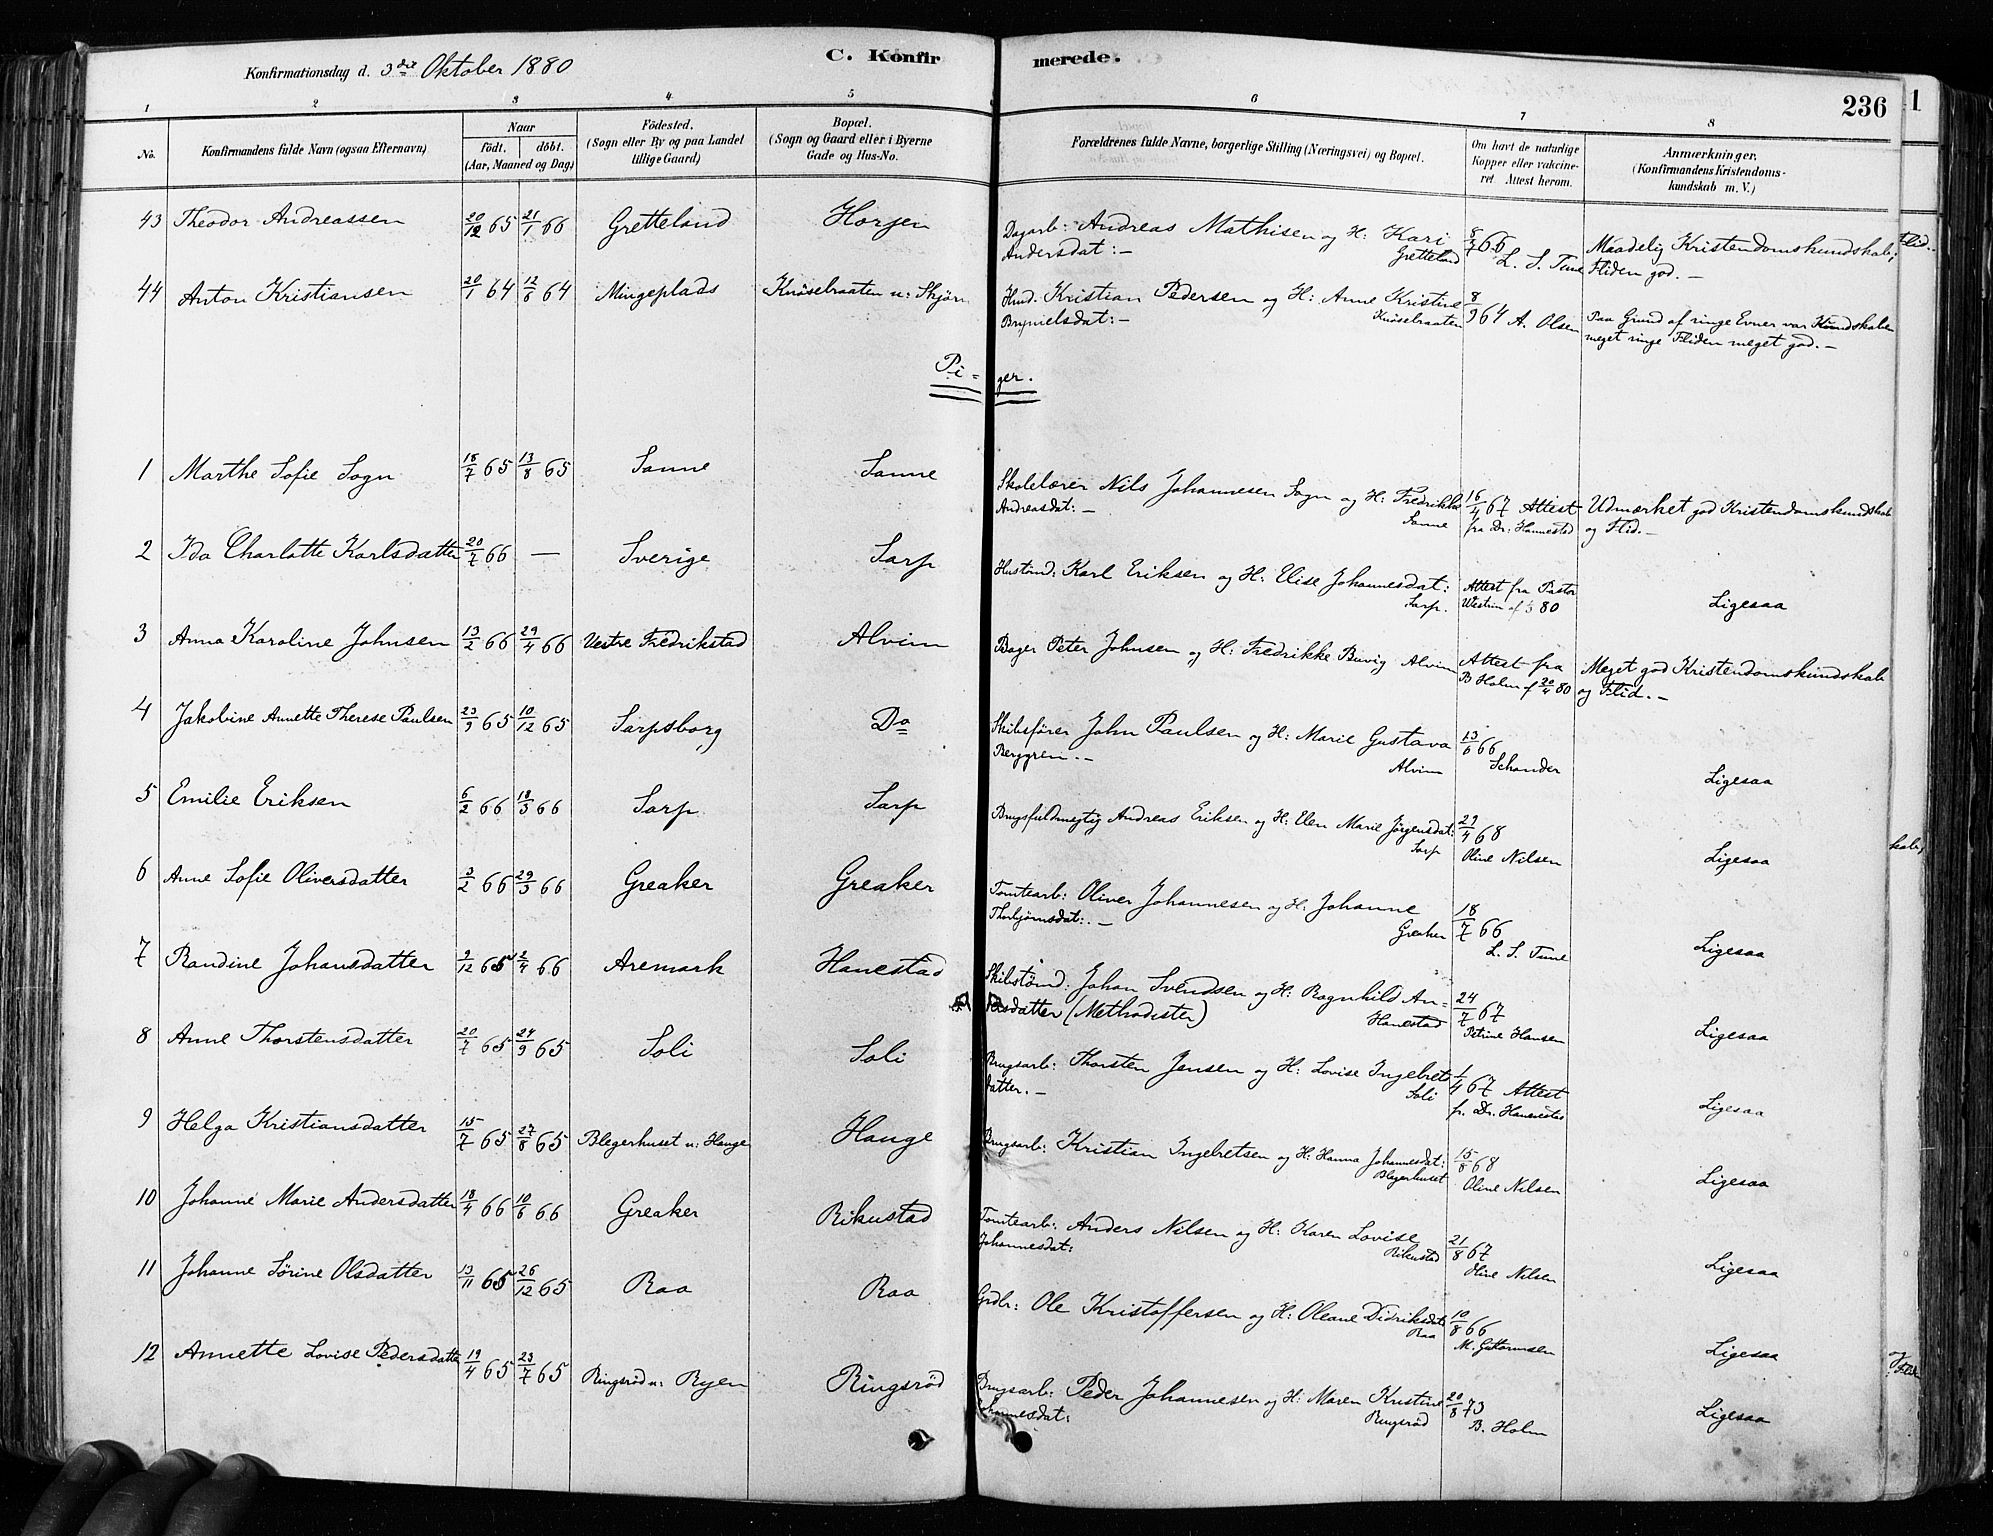 Konfirmationsdag d. 3die Oktober 1880
C. Konfirmerede.
236
1 2 3 4 5 6 7 8
No.
Konfirmandens fulde Navn (ogsaa Efternavn)
Naar
födt. döbt.
(Aar, Maaned og Dag)
Födested.
(Sogn eller By og paa Landet
tillige Gaard)
Bopæl.
(Sogn og Gaard eller i Byerne
Gade og Hus-No.
Forældrenes fulde Navne, borgerlige Stilling (Næringsvei) og Bopæl.
Om havt de naturlige
Kopper eller vakcine-
ret. Attest herom.
Anmærkninger.
(Konfirmandens Kristendoms-
kundskab m. V.)
43 Theodor Andreassen 20/12 65 21/1 66 Gretteland Horgen Dagarb: Andreas Mathisen og H: Kari 8/7 66
Andersdat: — Gretteland L. S. Tune Maadelig Kristendomskundskab, Fliden god. —
44 Anton Kristiansen 20/1 64 12/6 64 Mingeplads Knöselraaten u: Skjörn Hmd: Kristian Pedersen og H: Anne Kristine 8/9 64 A. Olsen
Brynielsdat: — Knöselraaten Paa Grund af ringe Evner var Kundskaben
meget ringe Fliden meget god. —
Pi- ger.
1 Marthe Sofie Sogn 18/7 65 13/8 65 Sanne Sanne Skolelærer Nils Johannesen Sogn og H: Fredrikke 16/4 67 Attest Udmærket god Kristendomskundskab
Andreasdat: — Sanne fra Dr. Hannestad og Flid. —
2 Ida Charlotte Karlsdatter 20/7 66 — Sverige Sarp Hustömd: Karl Eriksen og H: Elise Johannesdat: Attest fra Pastor Ligesaa
Sarp. 80
3 Anna Karoline Johnsen 13/2 66 29/4 66 Vestre Fredrikstad Alvim Bager Peter Johnsen og H: Fredrikke Buvig Alvim Attest fra Meget god Kristendomskundskab
B Holm af 30/4 80 og Flid. —
4 Jakobine Annette Therese Paulsen 23/9 65 10/12 65 Sarpsborg Do Skibsförer John Paulsen og H: Marie Gustava 13/6 66
Berggren. — Alvim Schander Ligesaa
5 Emilie Eriksen 6/2 66 18/3 66 Sarp Sarp Brugsfuldmegtig Andreas Eriksen og H: Elen Marie Jörgensdat: 29/4 68
Sarp Oline Nilsen Ligesaa
6 Anne Sofie Oliversdatter 3/2 66 29/3 66 Greaker Greaker Tomtearb: Oliver Johannesen og H: Johanne 18/7 66
Thorbjörnsdat: — Greaker L. S. Tune Ligesaa
7 Randine Johansdatter 9/12 65 2/4 66 Aremark Hanestad Skibstömd: Johan Svendsen og H: Ragnhild An- 24/7 67
dersdatter (Methodister) Hanestad Petrine Hansen Ligesaa
8 Anne Thorstensdatter 20/7 65 24/9 65 Soli Soli Brugsarb: Thorsten Jensen og H: Lovise Ingebrets 1/4 67 Attest
datter. — Soli fr. Dr. Hannestad Ligesaa
9 Helga Kristiansdatter 15/7 65 27/8 65 Blegerhuset u: Hauge Hauge Brugsarb: Kristian Ingebretsen og H: Hanna Johannesdat: 15/8 68
Blegerhuset Oline Nilsen Ligesaa
10 Johanne Marie Andersdatter 18/4 66 10/6 66 Greaker Rikustad Tomtearb: Anders Nilsen og H: Karen Lovise 21/8 67
Johannesdat: Rikustad Oline Nilsen Ligesaa
11 Johanne Sörine Olsdatter 13/11 65 26/12 65 Raa Raa Grdbr: Ole Kristoffersen og H: Oleane Didriksdat: 10/8 66
Raa M. Guttormsen Ligesaa
12 Annette Lovise Pedersdatter 19/4 65 23/7 65 Ringsröd u: Ryen Ringsröd Brugsarb: Peder Johannesen og H: Maren Kristine 20/8 73
Johannesdat: Ringsröd B. Holm Ligesaa